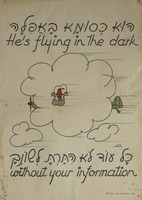 הוא כסומא באפלה
He's flying in the dark
כל עוד לא התרת לשונך
without your information